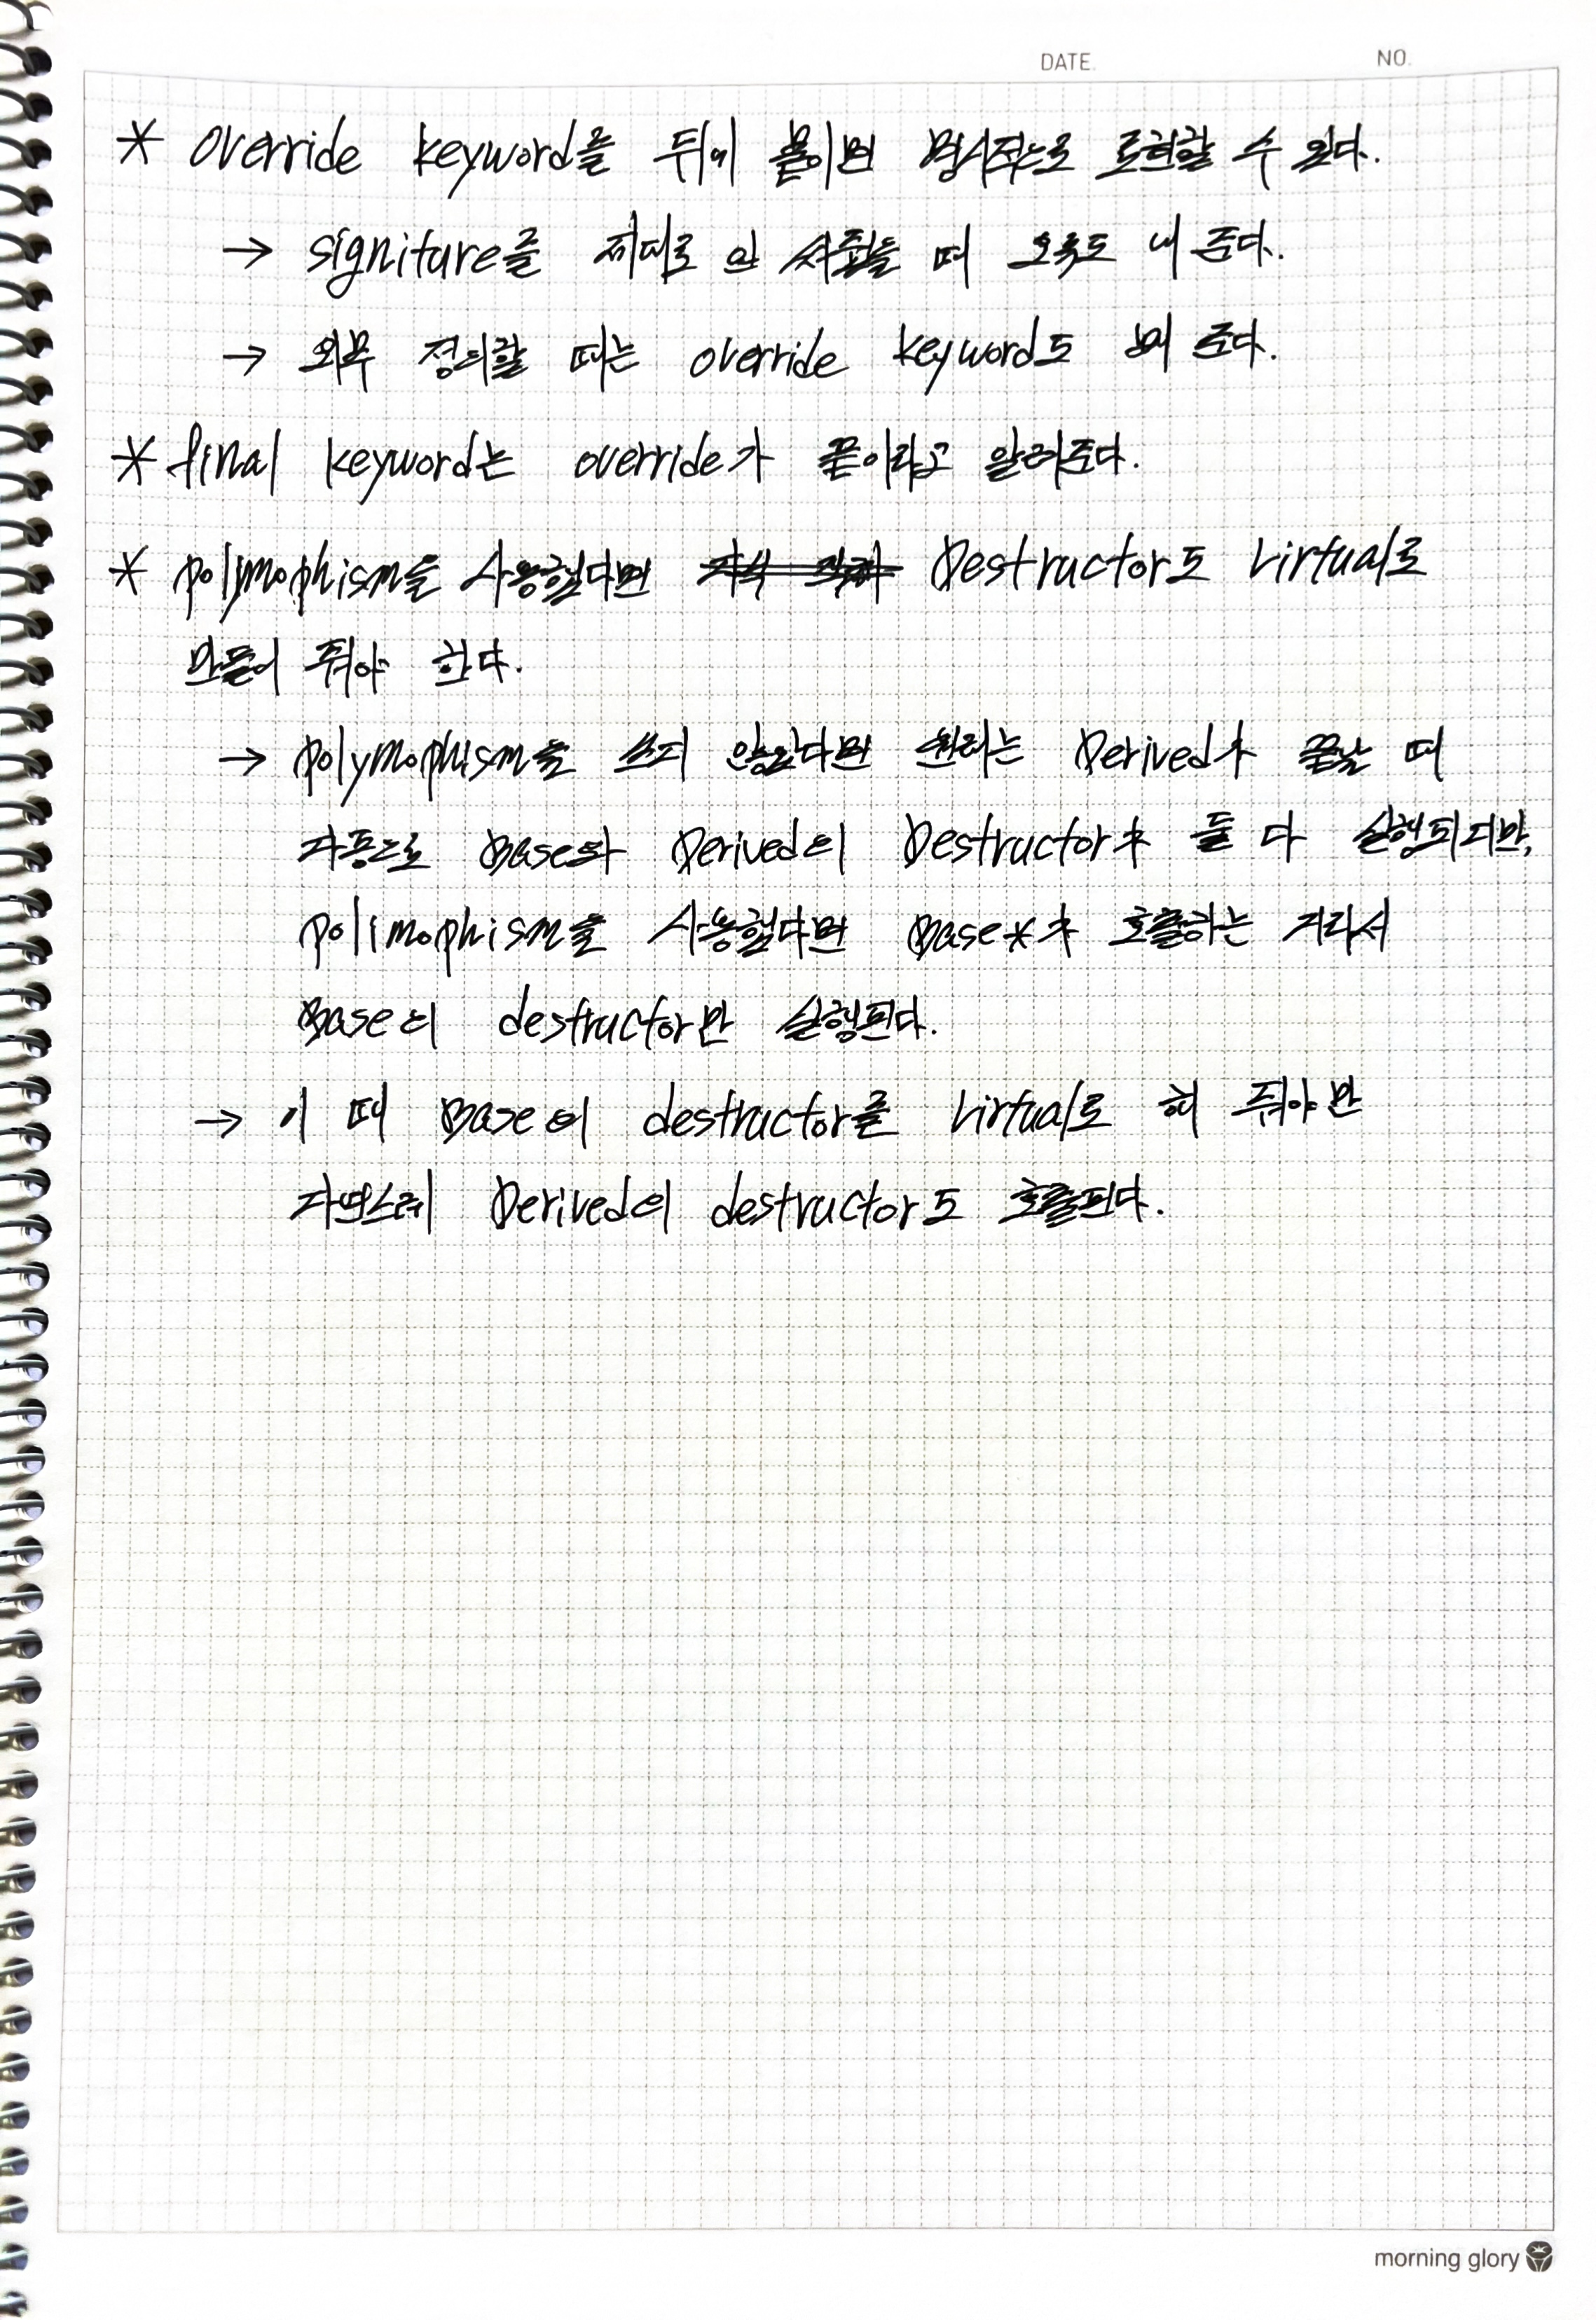 DATE. NO.
* override keyword를 뒤에 붙이면 명시적으로 표현할 수 있다.
→ signiture를 제대로 안 써줬을 때 오류도 내 준다.
→ 외부 정의할 때는 override keyword도 빼 준다.
* final keyword는 override가 끝이라고 알려준다.
* polymophism을 사용했다면 Destructor도 virtual로
만들어 줘야 한다.
→ polymophism을 쓰지 않았다면 원래는 Derived가 끝날 때
자동으로 Base와 Derived의 Destructor가 둘 다 실행되지만,
polimophism을 사용했다면 Base*가 호출하는 거라서
Base의 destructor만 실행된다.
→ 이 때 Base의 destructor를 virtual로 해 줘야만
자연스레 Derived의 destructor도 호출된다.
morning glory